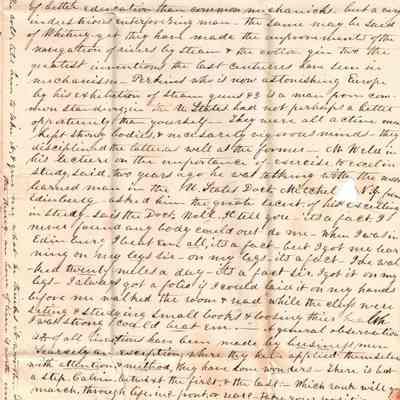 of better education than common mechanicks. but a very
industrious enterprizing man. The same may be said
of Whitney. yet they have made the improvement of the
navigation of rivers by steam & the cotton gin two the
greatest inventions the last centuries have seen in
mechanism. Perkins who is now astonishing Europe
by his exhibition of steam guns &c is a man from com
mon standing in the U States had not perhaps a better
opportunity than yourself – They were all active men
kept strong bodies & necessarily vigorous minds – they
disciplined the latter as well as the former – Mr
in his lecture on the importance of exercise to
study, said, two years ago he was talking with the most
learned man in the U States Doct. Mitchel of N Y, from
Edinburg – asked him the great secret of his
in study – said the Doct. Well I'll tell you – its a fact, I
never found any body could out do me – When I was in
Edinburg I beat em all, its a fact – but I got my lear
ning on my legs Sir – on my legs – its a fact – I've wal
ked twenty miles a day – Its a fact Sir, I got it on my
legs – I always got a folio if I could laid it on my hands
before me walked the room & read while the chaps were
sitting & studying small books & loosing their health
I was strong & could beat em – A general observation
all inventions have been made by business men
Scarcely an exception, where they have applied themselves
with attention & method, they have done wonders – There is but
a step Calvin, betwixt the first & the last – Which rank will you
march, through life in, front, or rear.